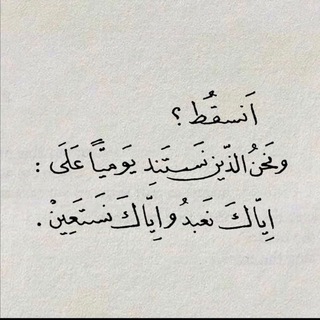 اَنسقُط ؟
ونحنُ الذّين نَستَندِ يَوميّاً عَلَى :
اِيّاكَ نَعبدُ واِيّاكَ نَستَعِينْ .